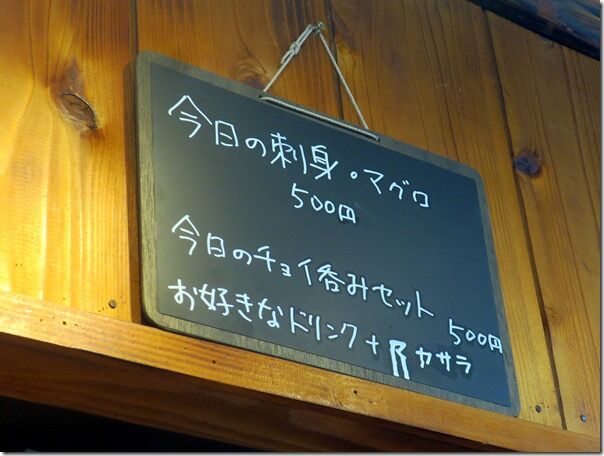 今日の刺身。マグロ
500円
今日のチョイ呑みセット
500円
お好きなドリンク+阝ヤサラ